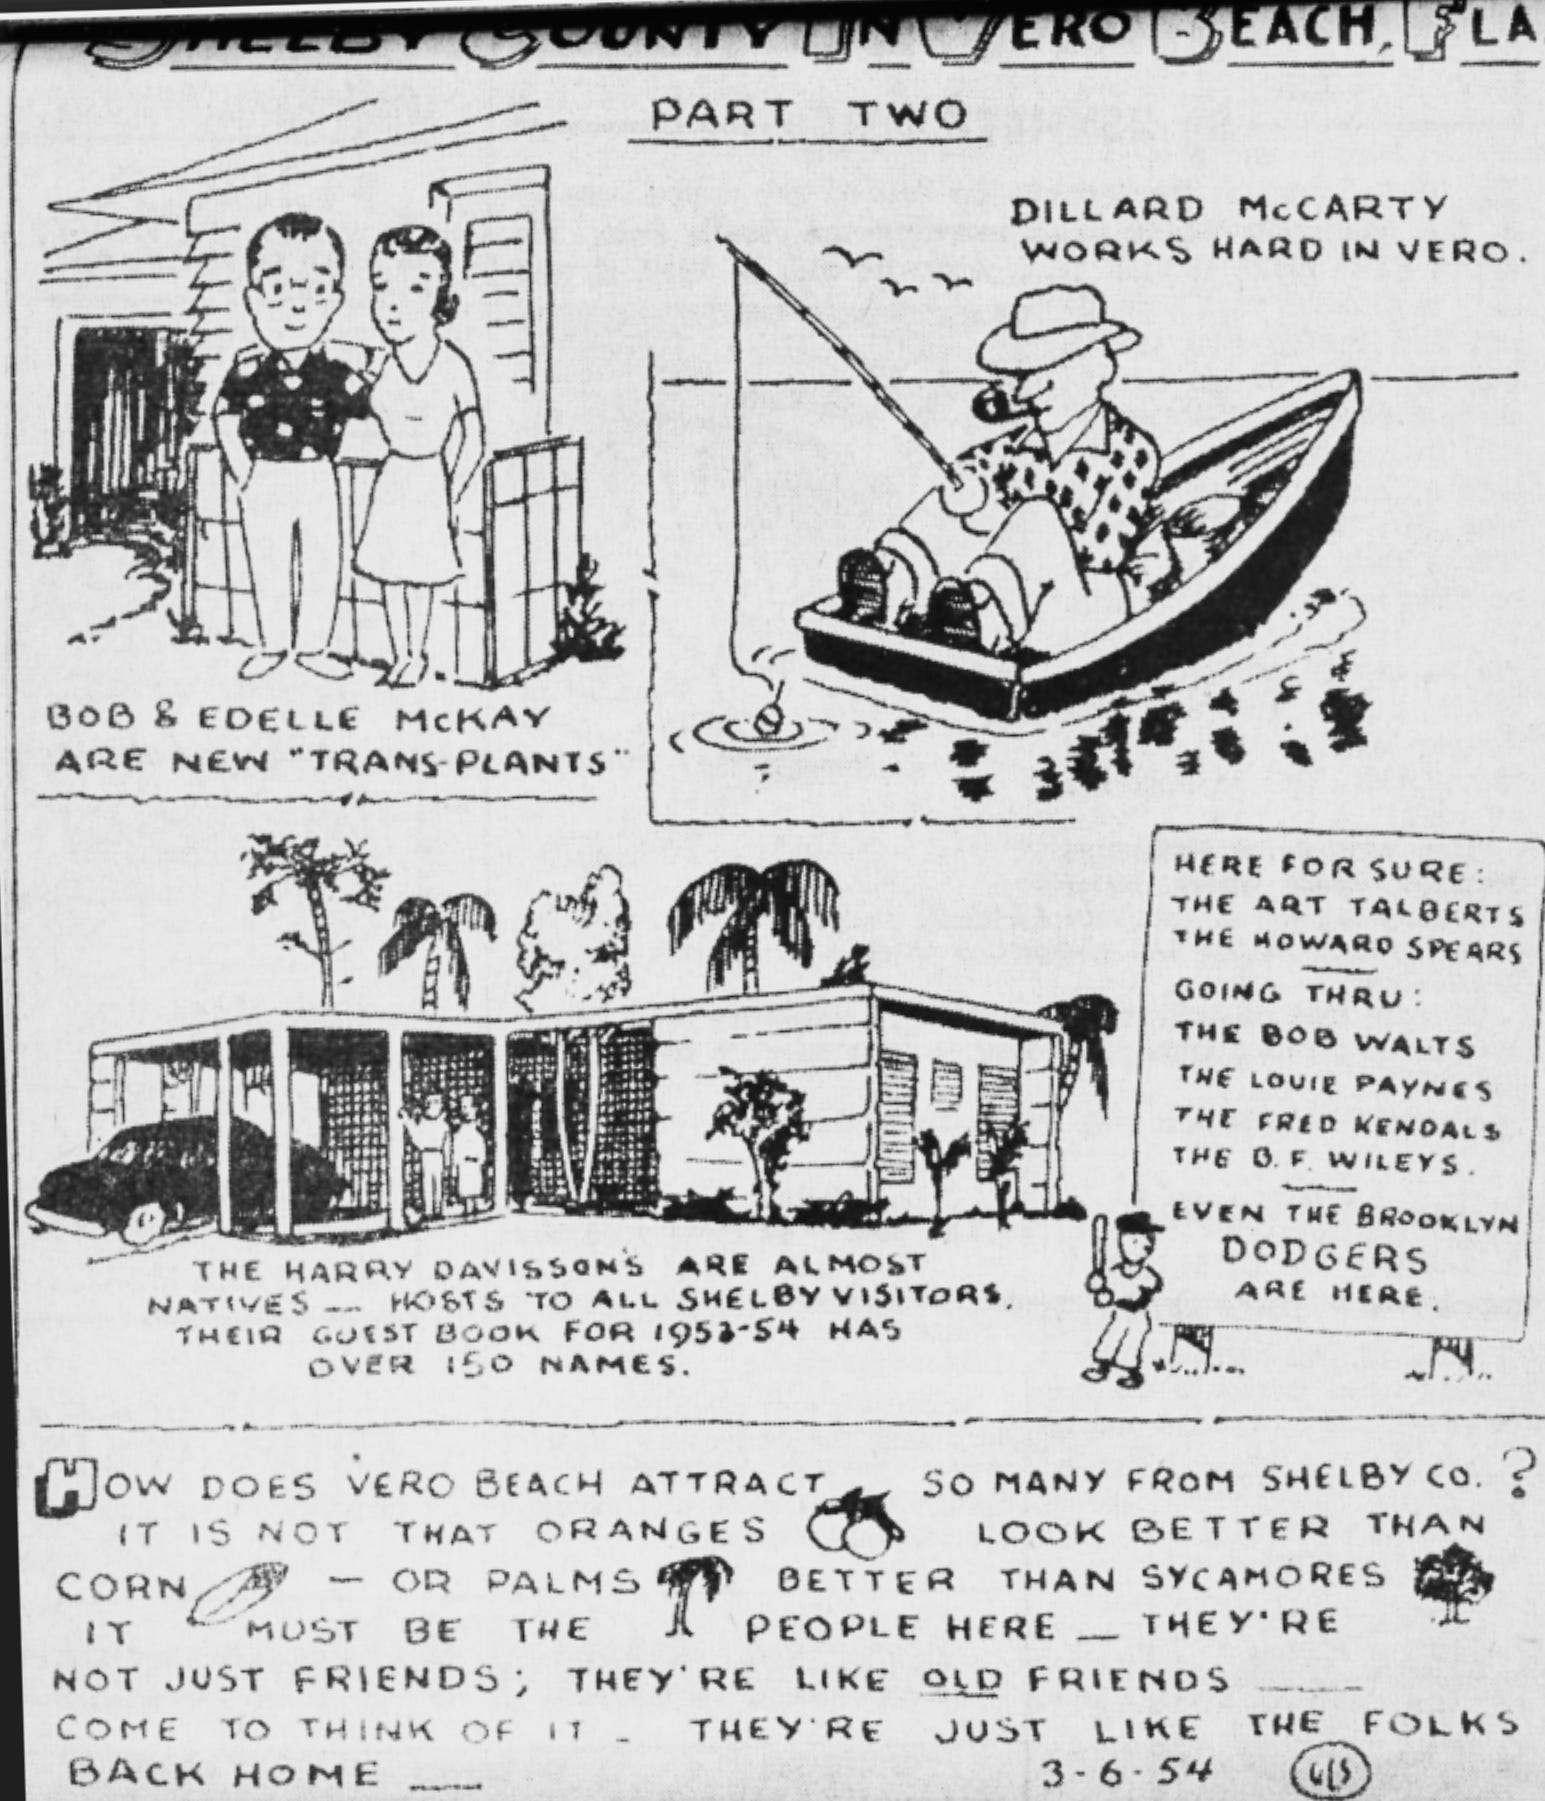 SHELBY COUNTY IN VERO BEACH, FLA.
PART TWO
DILLARD McCARTY
WORKS HARD IN VERO.
BOB & EDELLE McKAY
ARE NEW "TRANS-PLANTS"
HERE FOR SURE:
THE ART TALBERTS
THE HOWARD SPEARS
GOING THRU:
THE BOB WALTS
THE LOUIE PAYNES
THE FRED KENDALS
THE B. F. WILEYS.
EVEN THE BROOKLYN
DODGERS
ARE HERE.
THE HARRY DAVISSON'S ARE ALMOST
NATIVES -- HOSTS TO ALL SHELBY VISITORS.
THEIR GUEST BOOK FOR 1953-54 HAS
OVER 150 NAMES.
HOW DOES VERO BEACH ATTRACT SO MANY FROM SHELBY CO. ?
IT IS NOT THAT ORANGES LOOK BETTER THAN
CORN - OR PALMS BETTER THAN SYCAMORES
IT MUST BE THE PEOPLE HERE — THEY'RE
NOT JUST FRIENDS; THEY'RE LIKE OLD FRIENDS ——
COME TO THINK OF IT - THEY'RE JUST LIKE THE FOLKS
BACK HOME ——
3-6-54